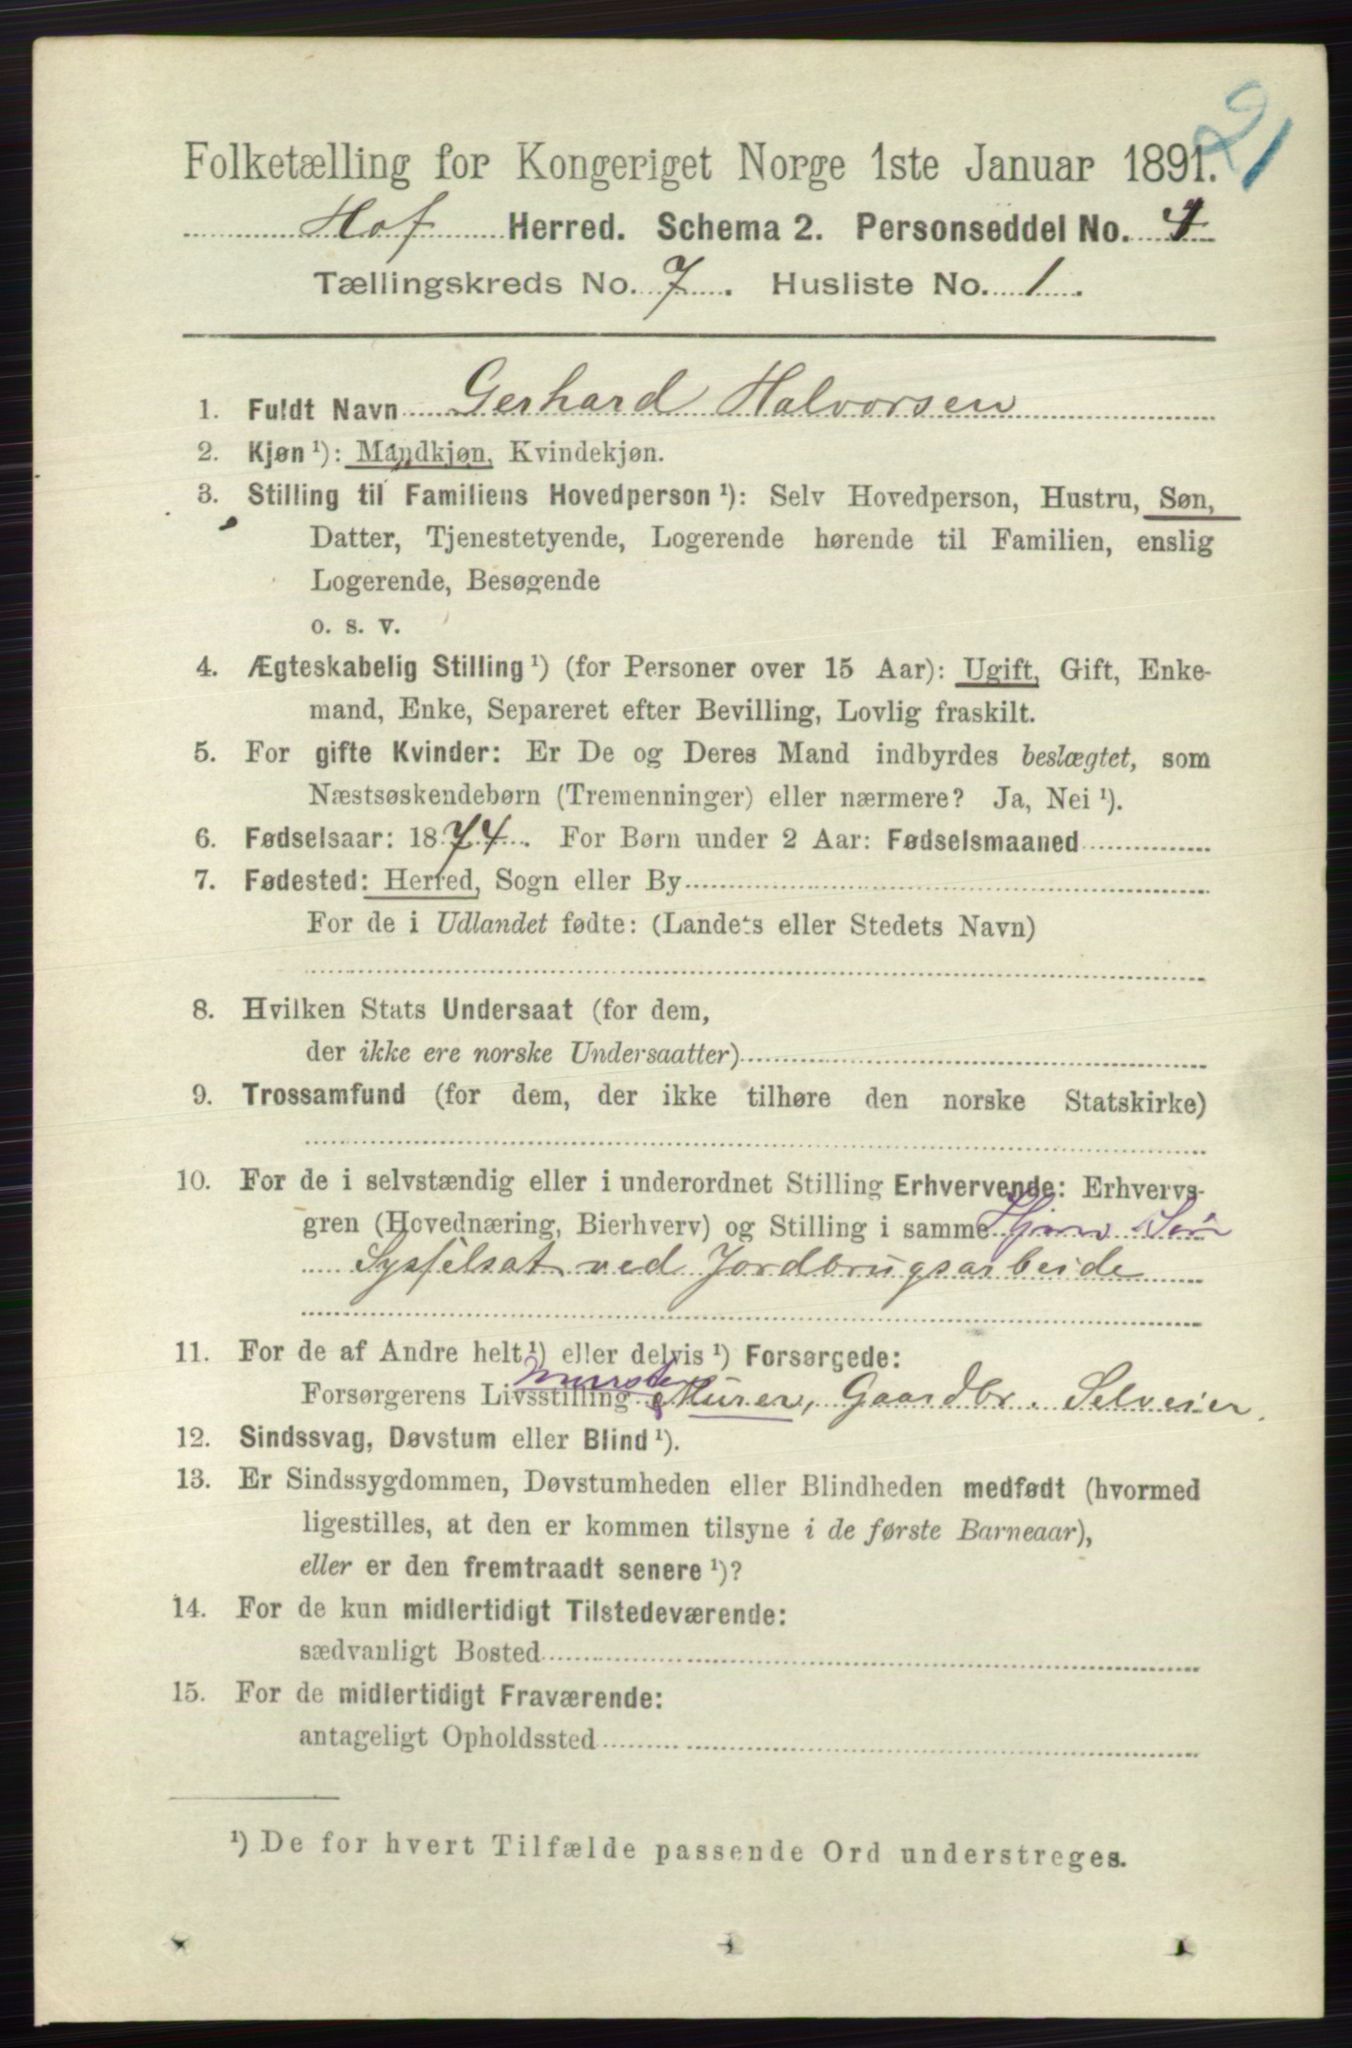 21
Folketælling for Kongeriget Norge 1ste Januar 1891.
Hof Herred. Schema 2. Personseddel No. 4
Tællingskreds No. 7. Husliste No. 1.
1. Fuldt Navn Gerhard Halvorsen
2. Kjøn ¹): Mandkjøn, Kvindekjøn.
3. Stilling til Familiens Hovedperson ¹): Selv Hovedperson, Hustru, Søn,
Datter, Tjenestetyende, Logerende hørende til Familien, enslig
Logerende, Besøgende
o. s. v.
4. Ægteskabelig Stilling ¹) (for Personer over 15 Aar): Ugift, Gift, Enke-
mand, Enke, Separeret efter Bevilling, Lovlig fraskilt.
5. For gifte Kvinder: Er De og Deres Mand indbyrdes beslægtet, som
Næstsøskendebørn (Tremenninger) eller nærmere? Ja, Nei ¹).
6. Fødselsaar: 1874. For Børn under 2 Aar: Fødselsmaaned
7. Fødested: Herred, Sogn eller By
For de i Udlandet fødte: (Landets eller Stedets Navn)
8. Hvilken Stats Undersaat (for dem,
der ikke ere norske Undersaatter)
9. Trossamfund (for dem, der ikke tilhøre den norske Statskirke)
10. For de i selvstændig eller i underordnet Stilling Erhvervende: Erhvervs-
gren (Hovednæring, Bierhverv) og Stilling i samme
Sysselsat ved Jordbrugsarbeide
11. For de af Andre helt ¹) eller delvis ¹) Forsørgede:
Forsørgerens Livsstilling Murer, Gaardbr. Selveier.
12. Sindssvag, Døvstum eller Blind ¹).
13. Er Sindssygdommen, Døvstumheden eller Blindheden medfødt (hvormed
ligestilles, at den er kommen tilsyne i de første Barneaar),
eller er den fremtraadt senere ¹)?
14. For de kun midlertidigt Tilstedeværende:
sædvanligt Bosted
15. For de midlertidigt Fraværende:
antageligt Opholdssted
¹) De for hvert Tilfælde passende Ord understreges.